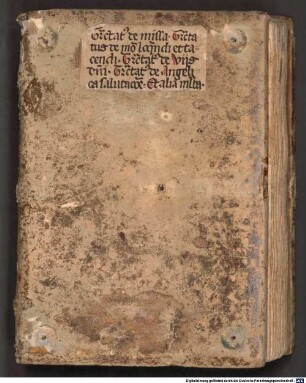 Tractat9 de missa. Tracta
tus de mō loq̄ndi et ta
cendi. Tractat9 de
diui. Tractat9 de Angeli
ca salutatiōe. Et alia mlta.
Digitalisierung gefördert durch die Deutsche Forschungsgemeinschaft